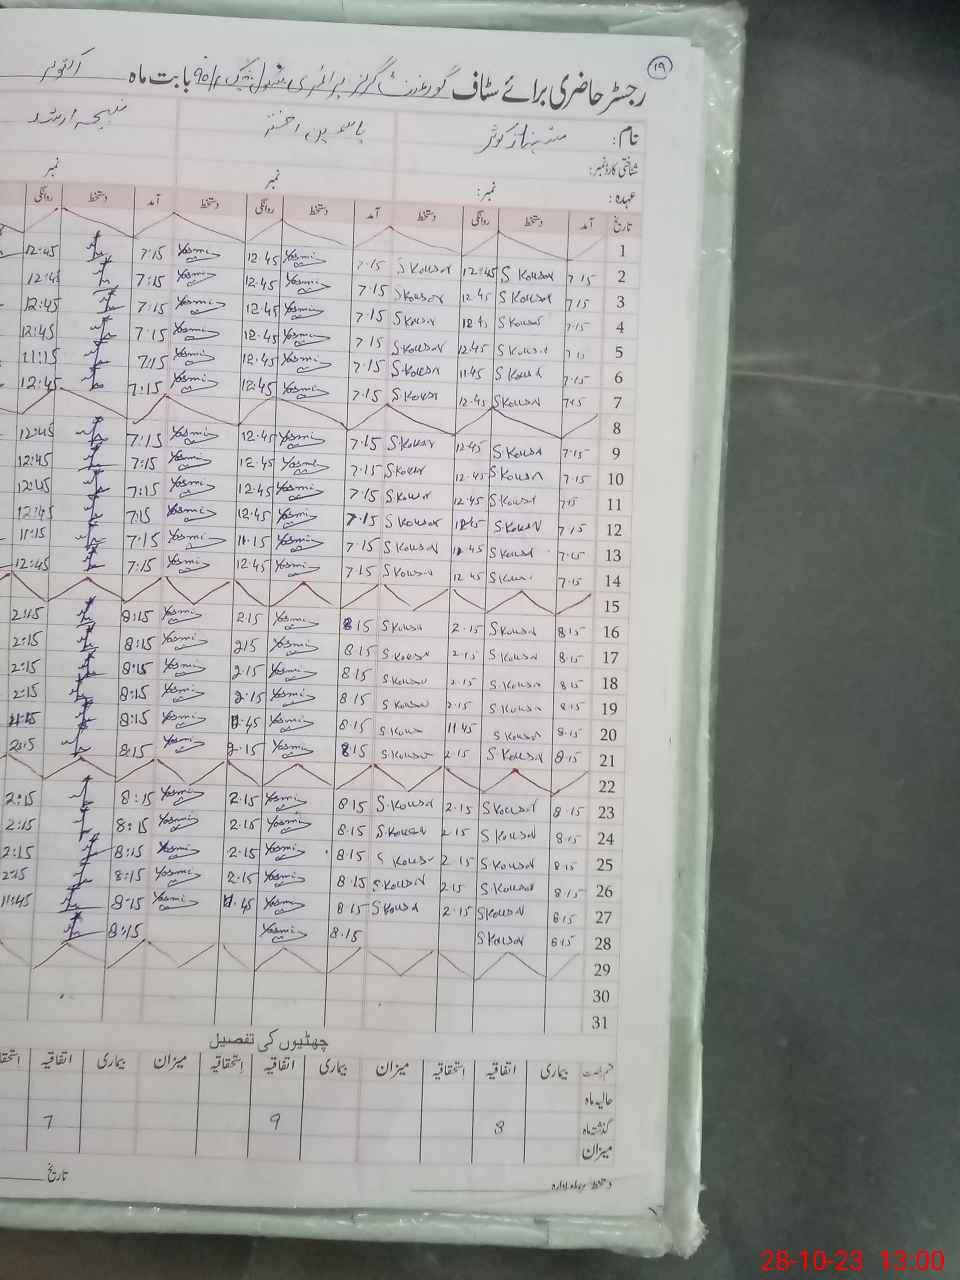 ۱۹
رجسٹر حاضری برائے سٹاف گورنمنٹ گرلز پرائمری سکول بابت ماہ اکتوبر
نام: شہناز کوثر یاسمین اختر
شناختی کارڈ نمبر:
عہدہ: نمبر: نمبر نمبر
تاریخ آمد دستخط روانگی دستخط آمد دستخط روانگی دستخط آمد دستخط روانگی
1
2 7·15 S Kousar 12:45 S Kousar 7·15 Yasmi 12.45 Yasmi 7:15 12:45
3 7·15 S Kousar 12.45 S Kousar 7·15 Yasmi 12.45 Yasmi 7:15 12:45
4 7·15 S Kousar 12.45 S Kousar 7·15 Yasmi 12.45 Yasmi 7:15 12:45
5 S Kousar 12.45 S Kousar 7·15 Yasmi 12.45 Yasmi 7:15 12:45
6 7·15 S Kousar 11.45 S Kousar 7·15 Yasmi 12.45 Yasmi 7:15 11:15
7 7·15 S Kousar 12.45 S Kousar 7·15 Yasmi 12.45 Yasmi 7:15 12:45
8
9 7·15 S Kousar 12.45 S Kousar 7·15 Yasmi 12.45 Yasmi 7:15 12:45
10 7·15 S Kousar 12.45 S Kousar 7·15 Yasmi 12.45 Yasmi 7:15 12:45
11 7·15 S Kousar 12.45 S Kousar 7·15 Yasmi 12.45 Yasmi 7:15 12:45
12 7·15 S Kousar 12.45 S Kousar 7·15 Yasmi 12.45 Yasmi 7:15 12:45
13 7·15 S Kousar 11.45 S Kousar 7·15 Yasmi 11.15 Yasmi 7:15 11:15
14 7·15 S Kousar 12.45 S Kousar 7·15 Yasmi 12.45 Yasmi 7:15 12:45
15
16 8·15 S Kousar 2·15 S Kousar 8·15 Yasmi 2.15 Yasmi 8:15 2:15
17 8·15 S Kousar 2·15 S Kousar 8·15 Yasmi 2.15 Yasmi 8:15 2:15
18 8·15 S Kousar 2·15 S Kousar 8·15 Yasmi 2.15 Yasmi 8:15 2:15
19 8·15 S Kousar 2·15 S Kousar 8·15 Yasmi 2.15 Yasmi 8:15 2:15
20 8·15 S Kousar 11.45 S Kousar 8·15 Yasmi 11.45 Yasmi 8:15 11:15
21 8·15 S Kousar 2·15 S Kousar 8·15 Yasmi 2.15 Yasmi 8:15 2:15
22
23 8·15 S Kousar 2·15 S Kousar 8·15 Yasmi 2.15 Yasmi 8:15 2:15
24 8·15 S Kousar 2·15 S Kousar 8·15 Yasmi 2.15 Yasmi 8:15 2:15
25 8·15 S Kousar 2·15 S Kousar 8·15 Yasmi 2.15 Yasmi 8:15 2:15
26 8·15 S Kousar 2·15 S Kousar 8·15 Yasmi 2.15 Yasmi 8:15 2:15
27 8·15 S Kousar 2·15 S Kousar 8·15 Yasmi 11.45 Yasmi 8:15 11:45
28 8·15 S Kousar 8·15 Yasmi 8:15
29
30
31
چھٹیوں کی تفصیل
قسم رخصت بیماری اتفاقیہ استحقاقیہ میزان بیماری اتفاقیہ استحقاقیہ میزان بیماری اتفاقیہ
حالیہ ماہ
گذشتہ ماہ 8 9 7
میزان
دستخط سربراہ ادارہ تاریخ
28-10-23 13:00